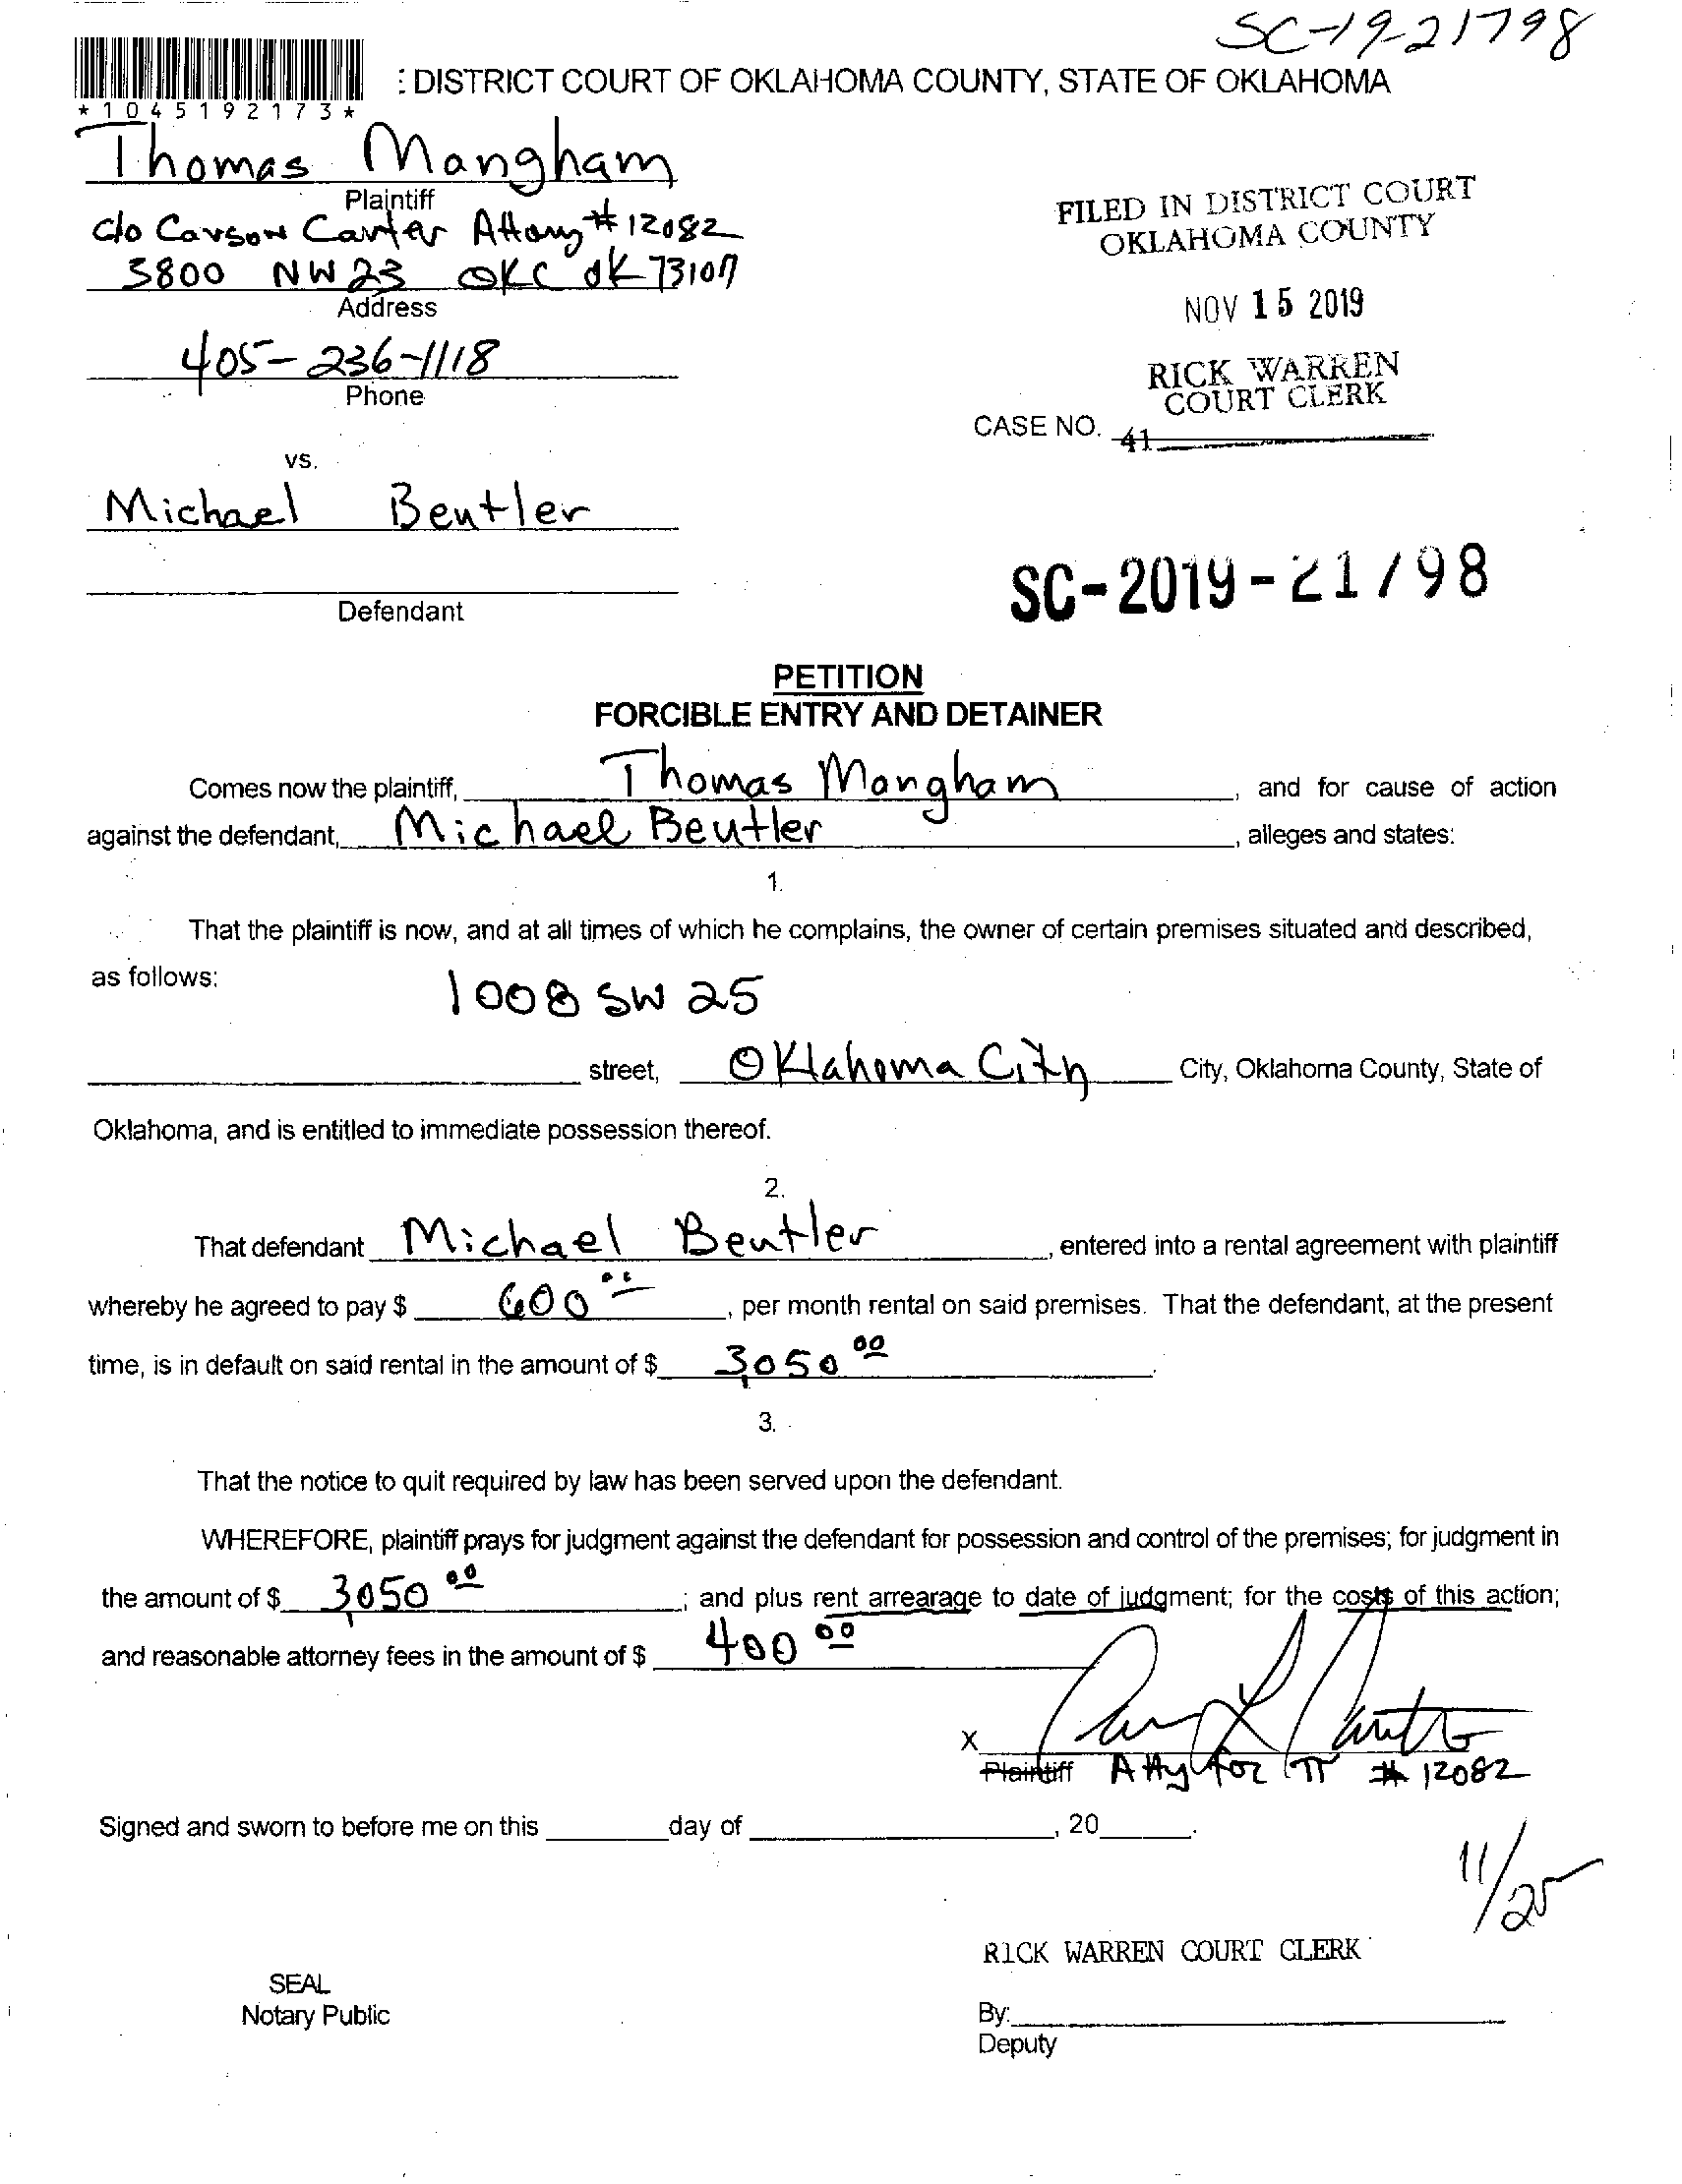 SC-19-21798
: DISTRICT COURT OF OKLAHOMA COUNTY, STATE OF OKLAHOMA
* 1 0 4 5 1 9 2 1 7 3 *
Thomas Mangham
Plaintiff
c/o Carson Carter Attorney # 12082
3800 NW 23 OKC OK 73107
Address
405-236-1118
Phone
FILED IN DISTRICT COURT
OKLAHOMA COUNTY
NOV 15 2019
RICK WARREN
COURT CLERK
CASE NO. 41
vs.
Michael Beutler
SC-2019-21798
Defendant
PETITION
FORCIBLE ENTRY AND DETAINER
Comes now the plaintiff, Thomas Mangham, and for cause of action
against the defendant, Michael Beutler, alleges and states:
1.
That the plaintiff is now, and at all times of which he complains, the owner of certain premises situated and described,
as follows:
1008 SW 25
street, Oklahoma City City, Oklahoma County, State of
Oklahoma, and is entitled to immediate possession thereof.
2.
That defendant Michael Beutler, entered into a rental agreement with plaintiff
whereby he agreed to pay $ 600 00, per month rental on said premises. That the defendant, at the present
time, is in default on said rental in the amount of $ 3,050 00.
3.
That the notice to quit required by law has been served upon the defendant.
WHEREFORE, plaintiff prays for judgment against the defendant for possession and control of the premises; for judgment in
the amount of $ 3,050 00; and plus rent arrearage to date of judgment; for the costs of this action;
and reasonable attorney fees in the amount of $ 400 00
X
Plaintiff Atty for π # 12082
Signed and sworn to before me on this day of , 20 .
11/25
RICK WARREN COURT CLERK
SEAL
Notary Public
By:
Deputy